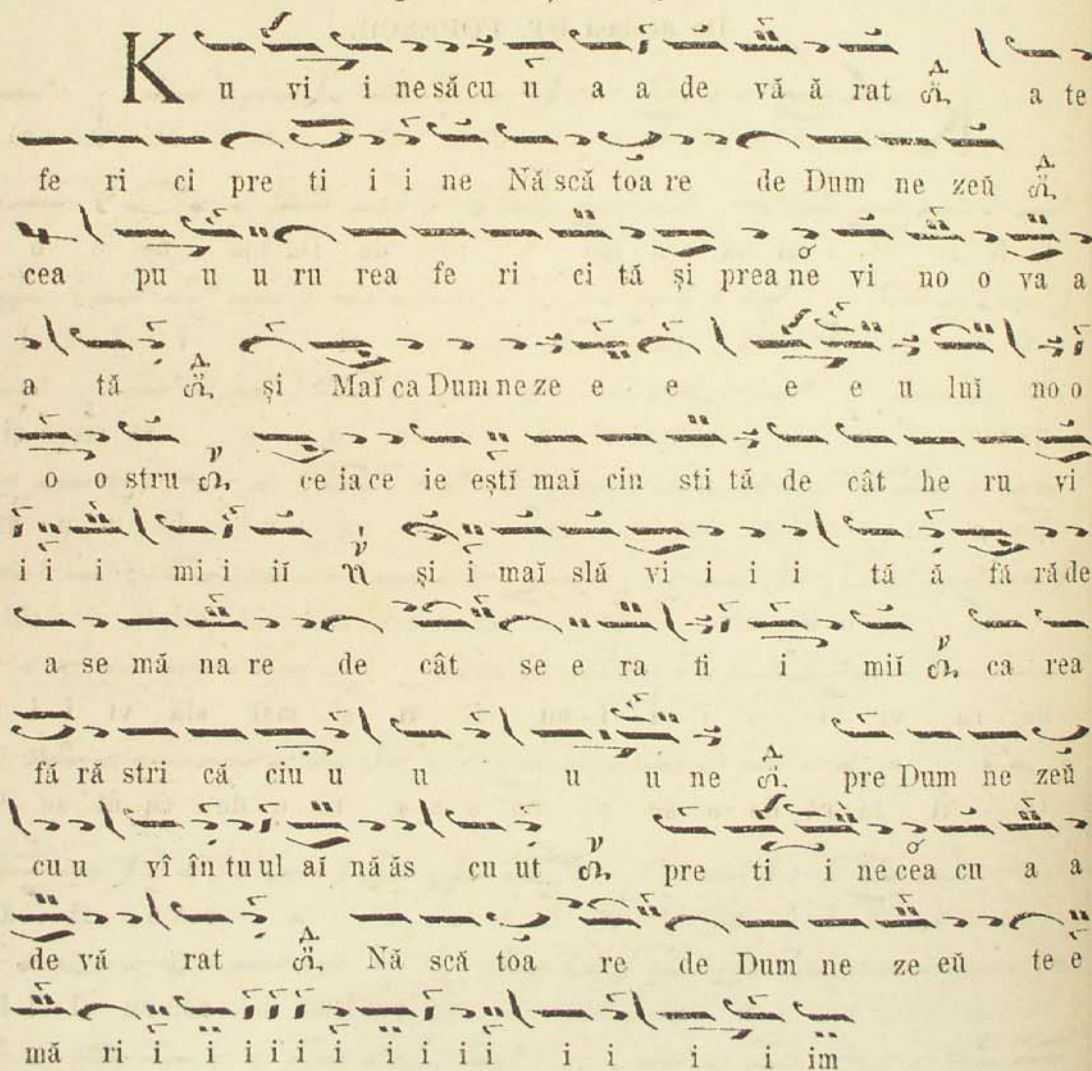 Ku vi i ne să cu u a a de vă ă rat a te
fe ri ci pre ti i i ne Nă scă toa re de Dum ne zeŭ
cea pu u u ru rea fe ri ci tă și prea ne vi no o va a
a tă și Maĭ ca Dum ne ze e e e e u luĭ no o
o o stru ce ia ce ie eștĭ maĭ cin sti tă de cât he ru vi
i i i mi i iĭ și i maĭ slă vi i i i tă ă fă ră de
a se mă na re de cât se e ra fi i miĭ ca rea
fă ră stri că ciu u u u u ne pre Dum ne zeŭ
cu u vî în tu ul aĭ nă ăs cu ut pre ti i ne cea cu a a
de vă rat Nă scă toa re de Dum ne ze eŭ te e
mă ri i i i i i i i i i i i i i i im